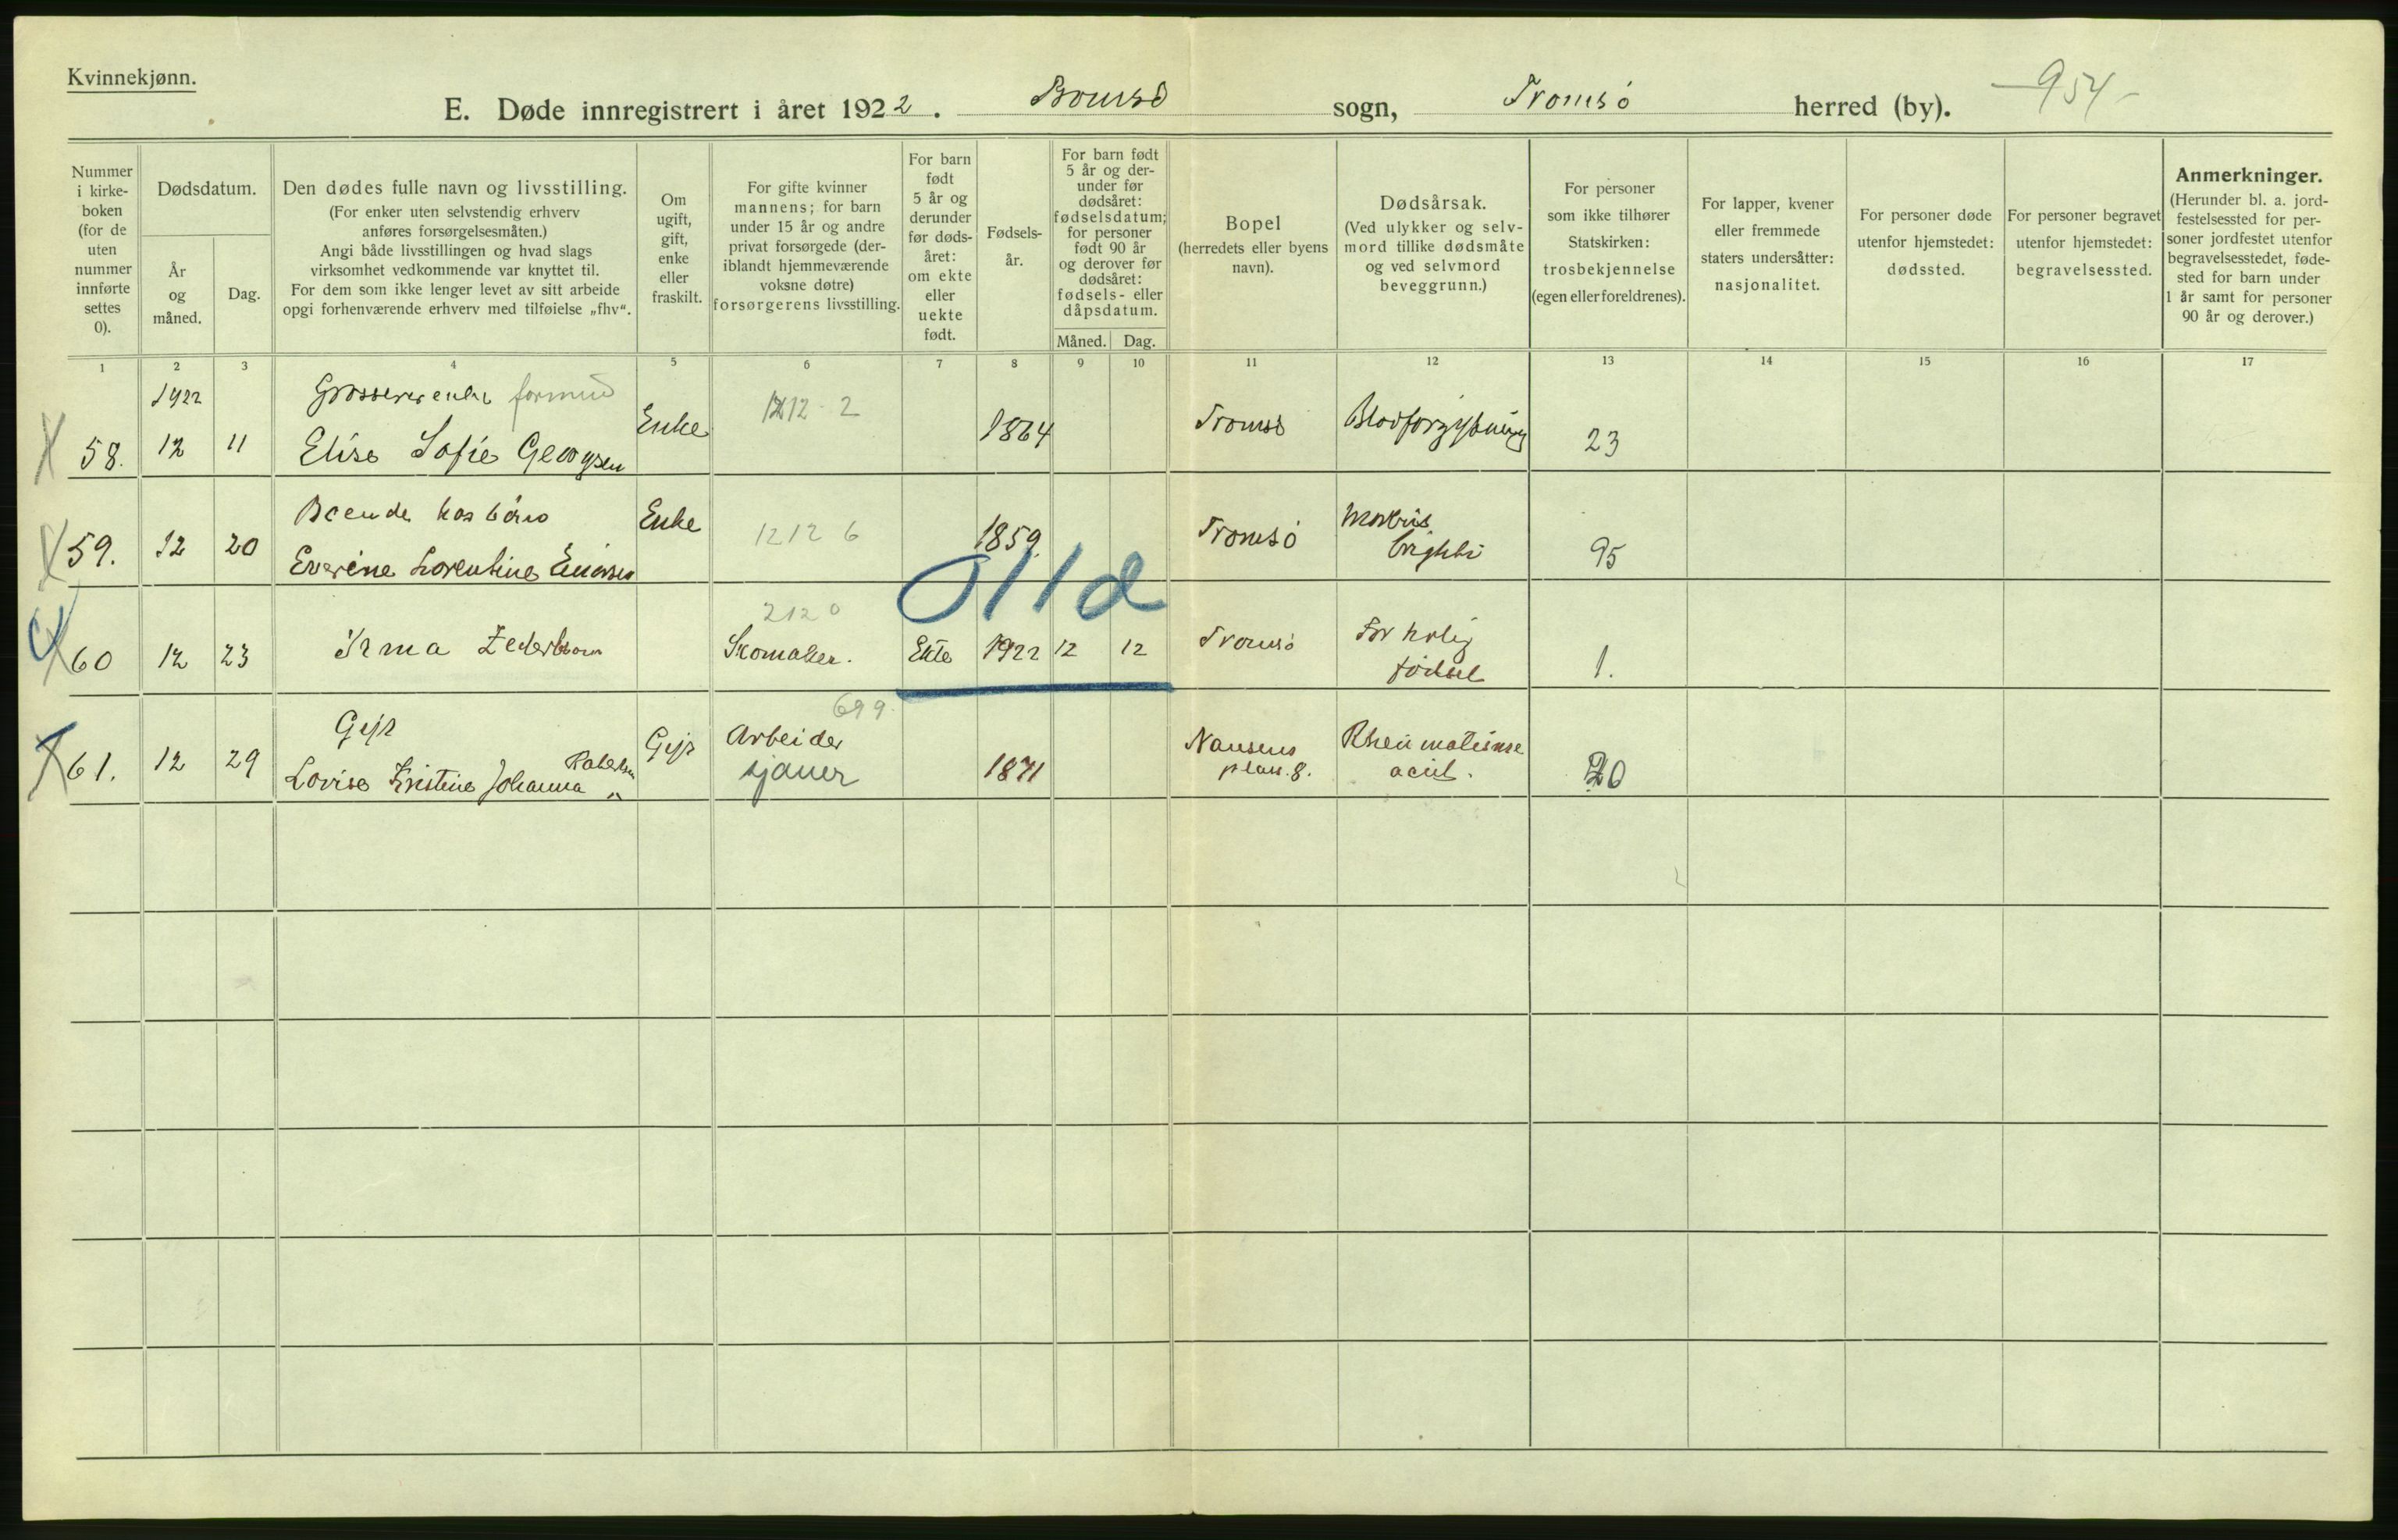 Kvinnekjønn.
E. Døde innregistrert i året 1922. Tromsø sogn, Tromsø herred (by). 954
Nummer i kirkeboken (for de uten nummer innførte settes 0).
Dødsdatum.
År og måned.
Dag.
Den dødes fulle navn og livsstilling.
(For enker uten selvstendig erhverv
anføres forsørgelsesmåten.)
Angi både livsstillingen og hvad slags
virksomhet vedkommende var knyttet til.
For dem som ikke lenger levet av sitt arbeide
opgi forhenværende erhverv med tilføielse „fhv“.
Om
ugift,
gift,
enke
eller
fraskilt.
For gifte kvinner
mannens; for barn
under 15 år og andre
privat forsørgede (der-
iblandt hjemmeværende
voksne døtre)
forsørgerens livsstilling.
For barn
født
5 år og
derunder
før døds-
året:
om ekte
eller
uekte
født.
Fødsels-
år.
For barn født
5 år og der-
under før
dødsåret:
fødselsdatum;
for personer
født 90 år
og derover før
dødsåret:
fødsels- eller
dåpsdatum.
Måned. Dag.
Bopel
(herredets eller byens
navn).
Dødsårsak.
(Ved ulykker og selv-
mord tillike dødsmåte
og ved selvmord
beveggrunn.)
For personer
som ikke tilhører
Statskirken:
trosbekjennelse
(egen eller foreldrenes).
For lapper, kvener
eller fremmede
staters undersåtter:
nasjonalitet.
For personer døde
utenfor hjemstedet:
dødssted.
For personer begravet
utenfor hjemstedet:
begravelsessted.
Anmerkninger.
(Herunder bl. a. jord-
festelsessted for per-
soner jordfestet utenfor
begravelsesstedet, føde-
sted for barn under
1 år samt for personer
90 år og derover.)
1 2 3 4 5 6 7 8 9 10 11 12 13 14 15 16 17
1922 Grossererenke
58. 12 11 Elise Sofie Georgsen Enke 1212 2 1864 Tromsø Blodforgiftning 23
Boende hos børn
59. 12 20 Everine Lorentine Enke 1212 6 1859. Tromsø Morbus brighti 95
011d
212 0
60 12 23 Irma Skomaker. Ekte 1922 12 12 Tromsø For tidlig fødsel 1.
699
Gift
61. 12 29 Lovise Kristine Johanna Gift Arbeider sjauer 1871 Nansens plass 8. Rheumatisme acut. 20